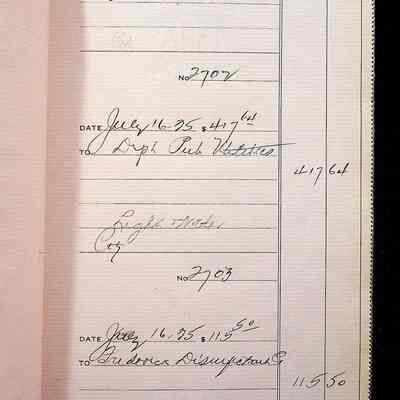 No 2702
DATE July 16-35 $417 64
TO Dept Pub Utilities
417 64
Light & Water
Coy
No 2703
DATE July 16-35 $115 50
TO Frederick
115 50